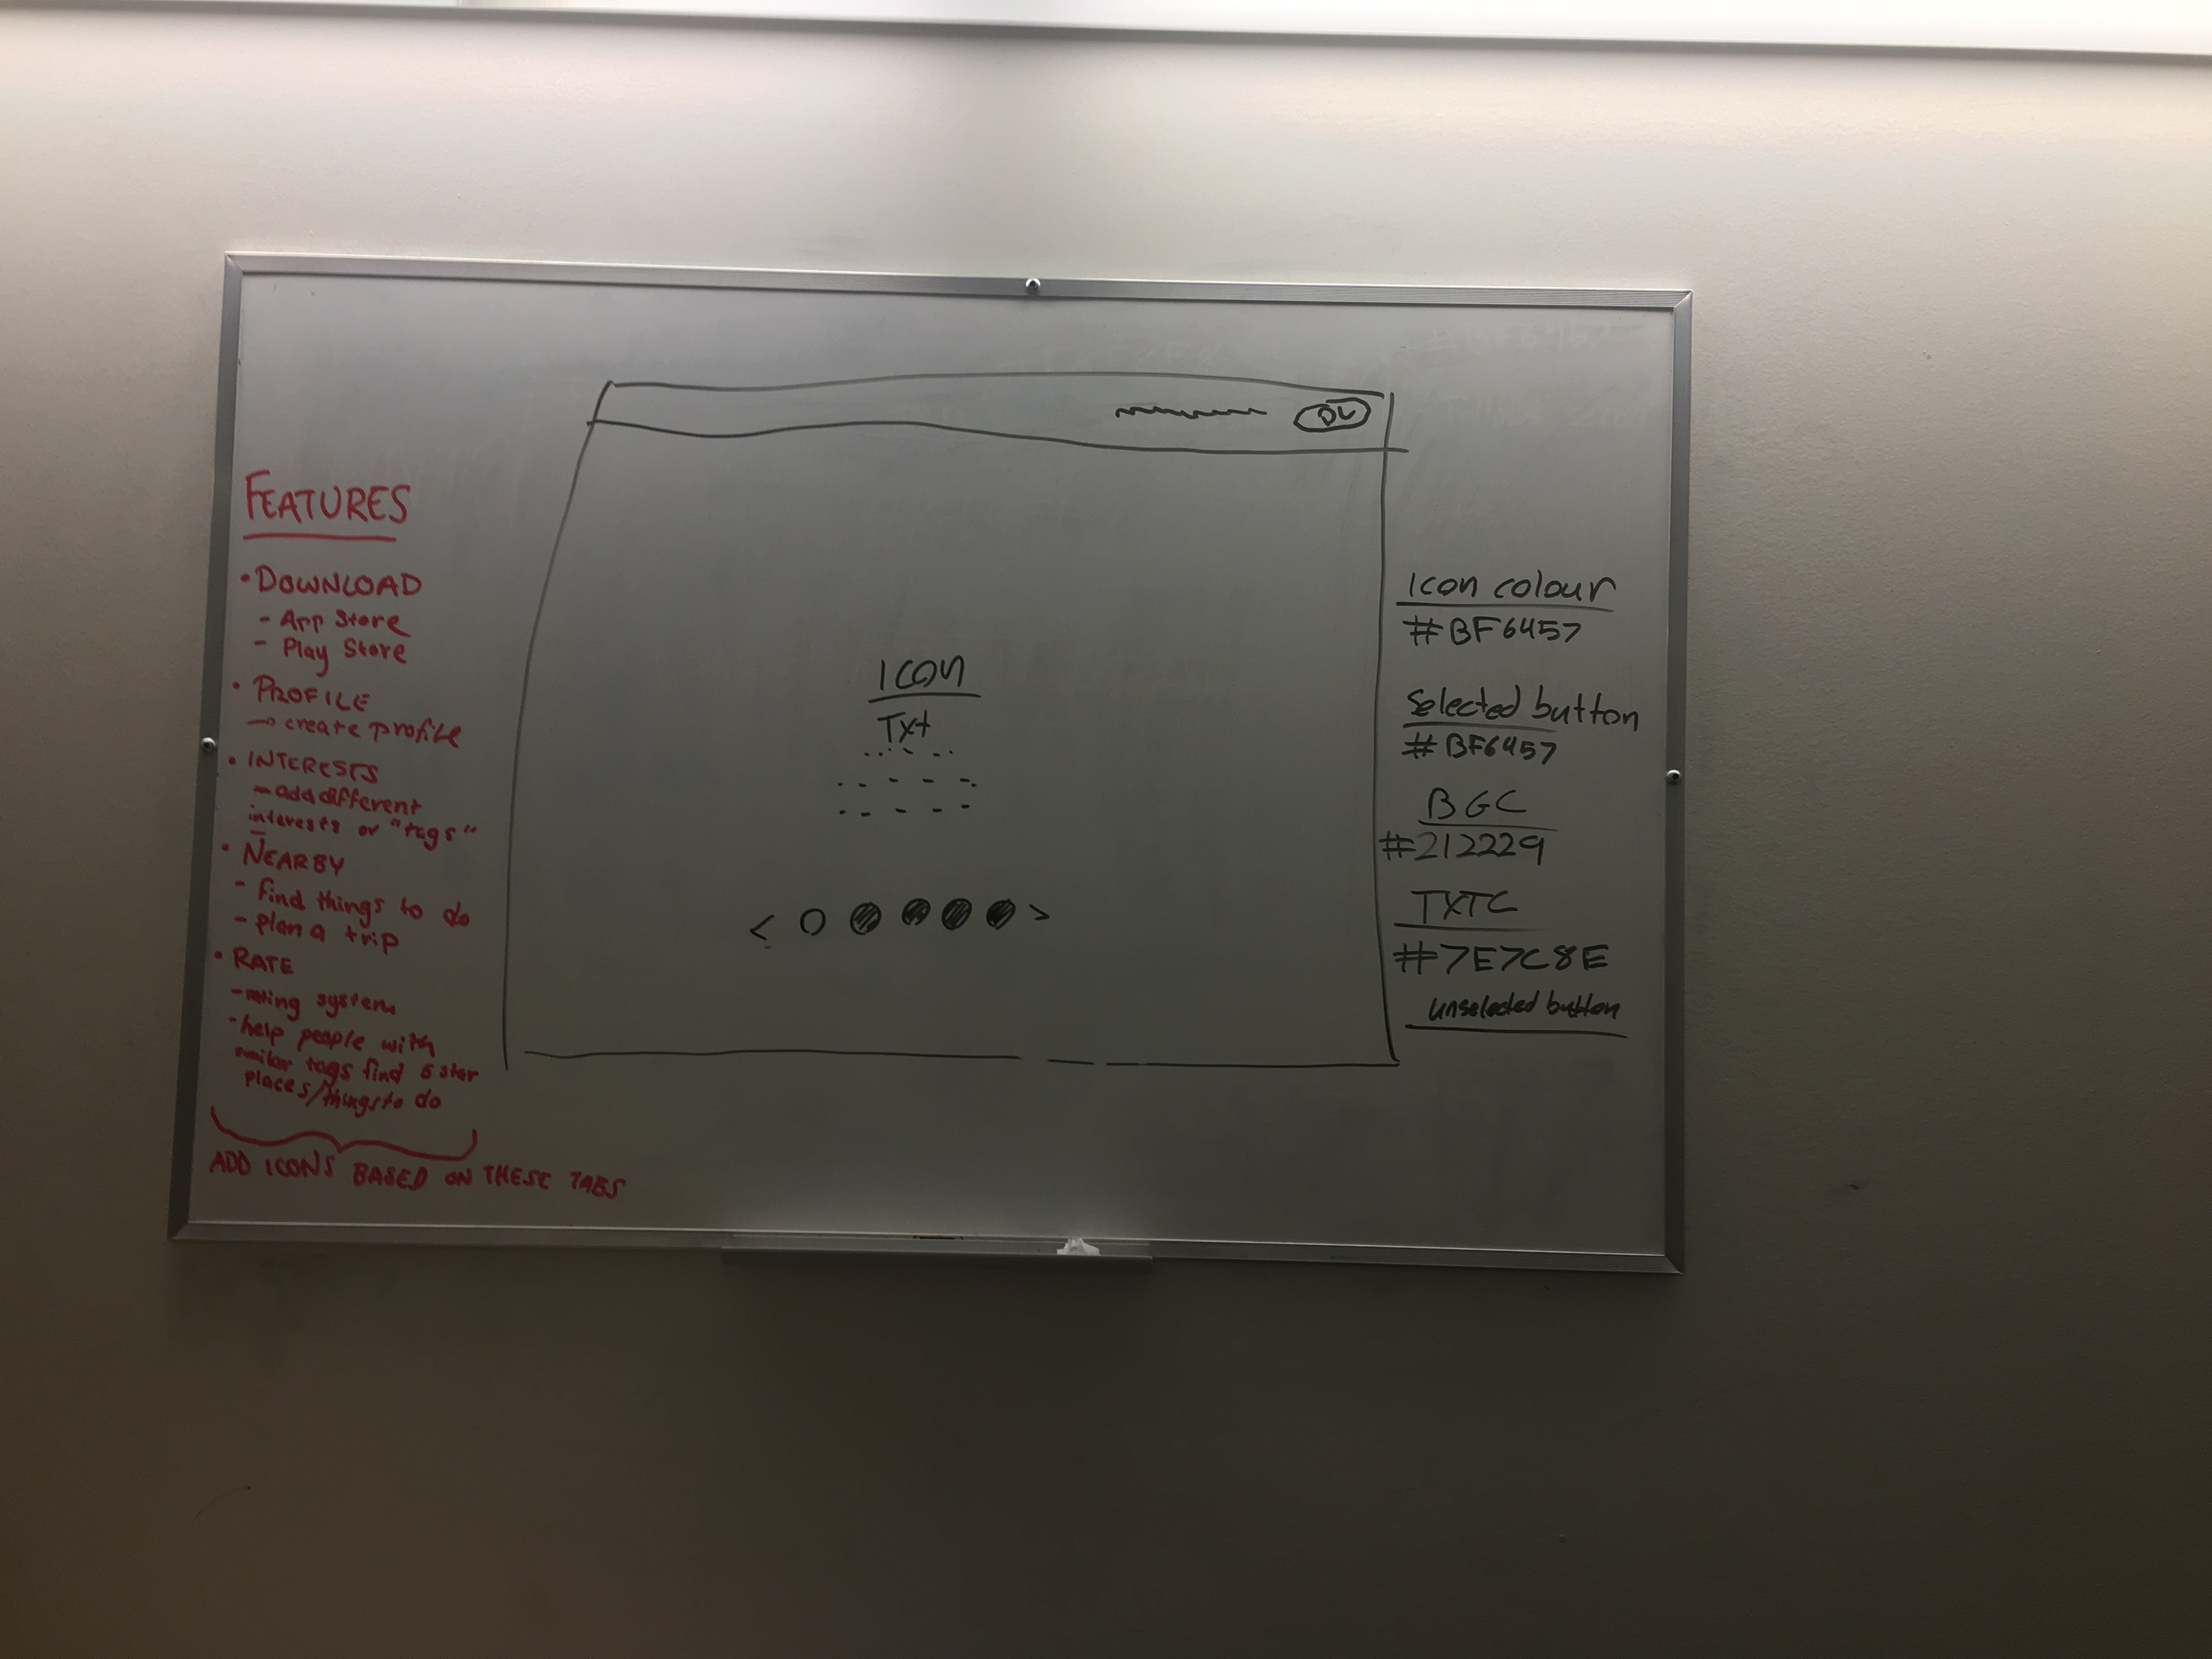 FEATURES
• DOWNLOAD
- App Store
- Play Store
• PROFILE
→ create profile
• INTERESTS
- add different
interests or "tags"
• NEARBY
- find things to do
- plan a trip
• RATE
- rating system
- help people with
similar tags find 5 star
places/things to do
ADD ICONS BASED ON THESE TABS
ICON
Txt
< >
Icon colour
#BF6457
Selected button
#BF6457
BGC
#212229
TXTC
#7E7C8E
unselected button